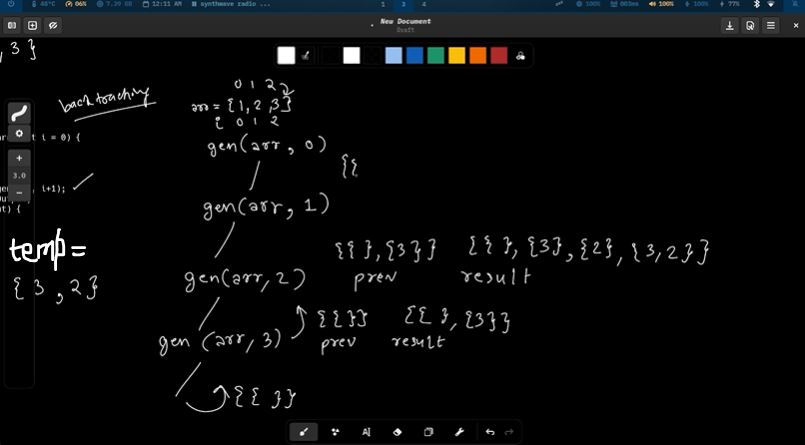 48°C 06% 7.39 GB 12:11 AM synthwave radio ... 1 3 4 100% 003ms 100% 100% 77%
New Document
Draft
, 3 }
backtracking
0 1 2
arr = {1, 2, 3}
0 1 2
t i = 0) {
gen(arr, 0)
{{
3.0
i+1);
t) {
gen(arr, 1)
temp=
{ 3 , 2 }
{{ }, {3}} {{ }, {3}, {2}, {3, 2}}
gen(arr, 2) prev result
{{ }} {{ }, {3}}
gen (arr, 3) prev result
{{ }}